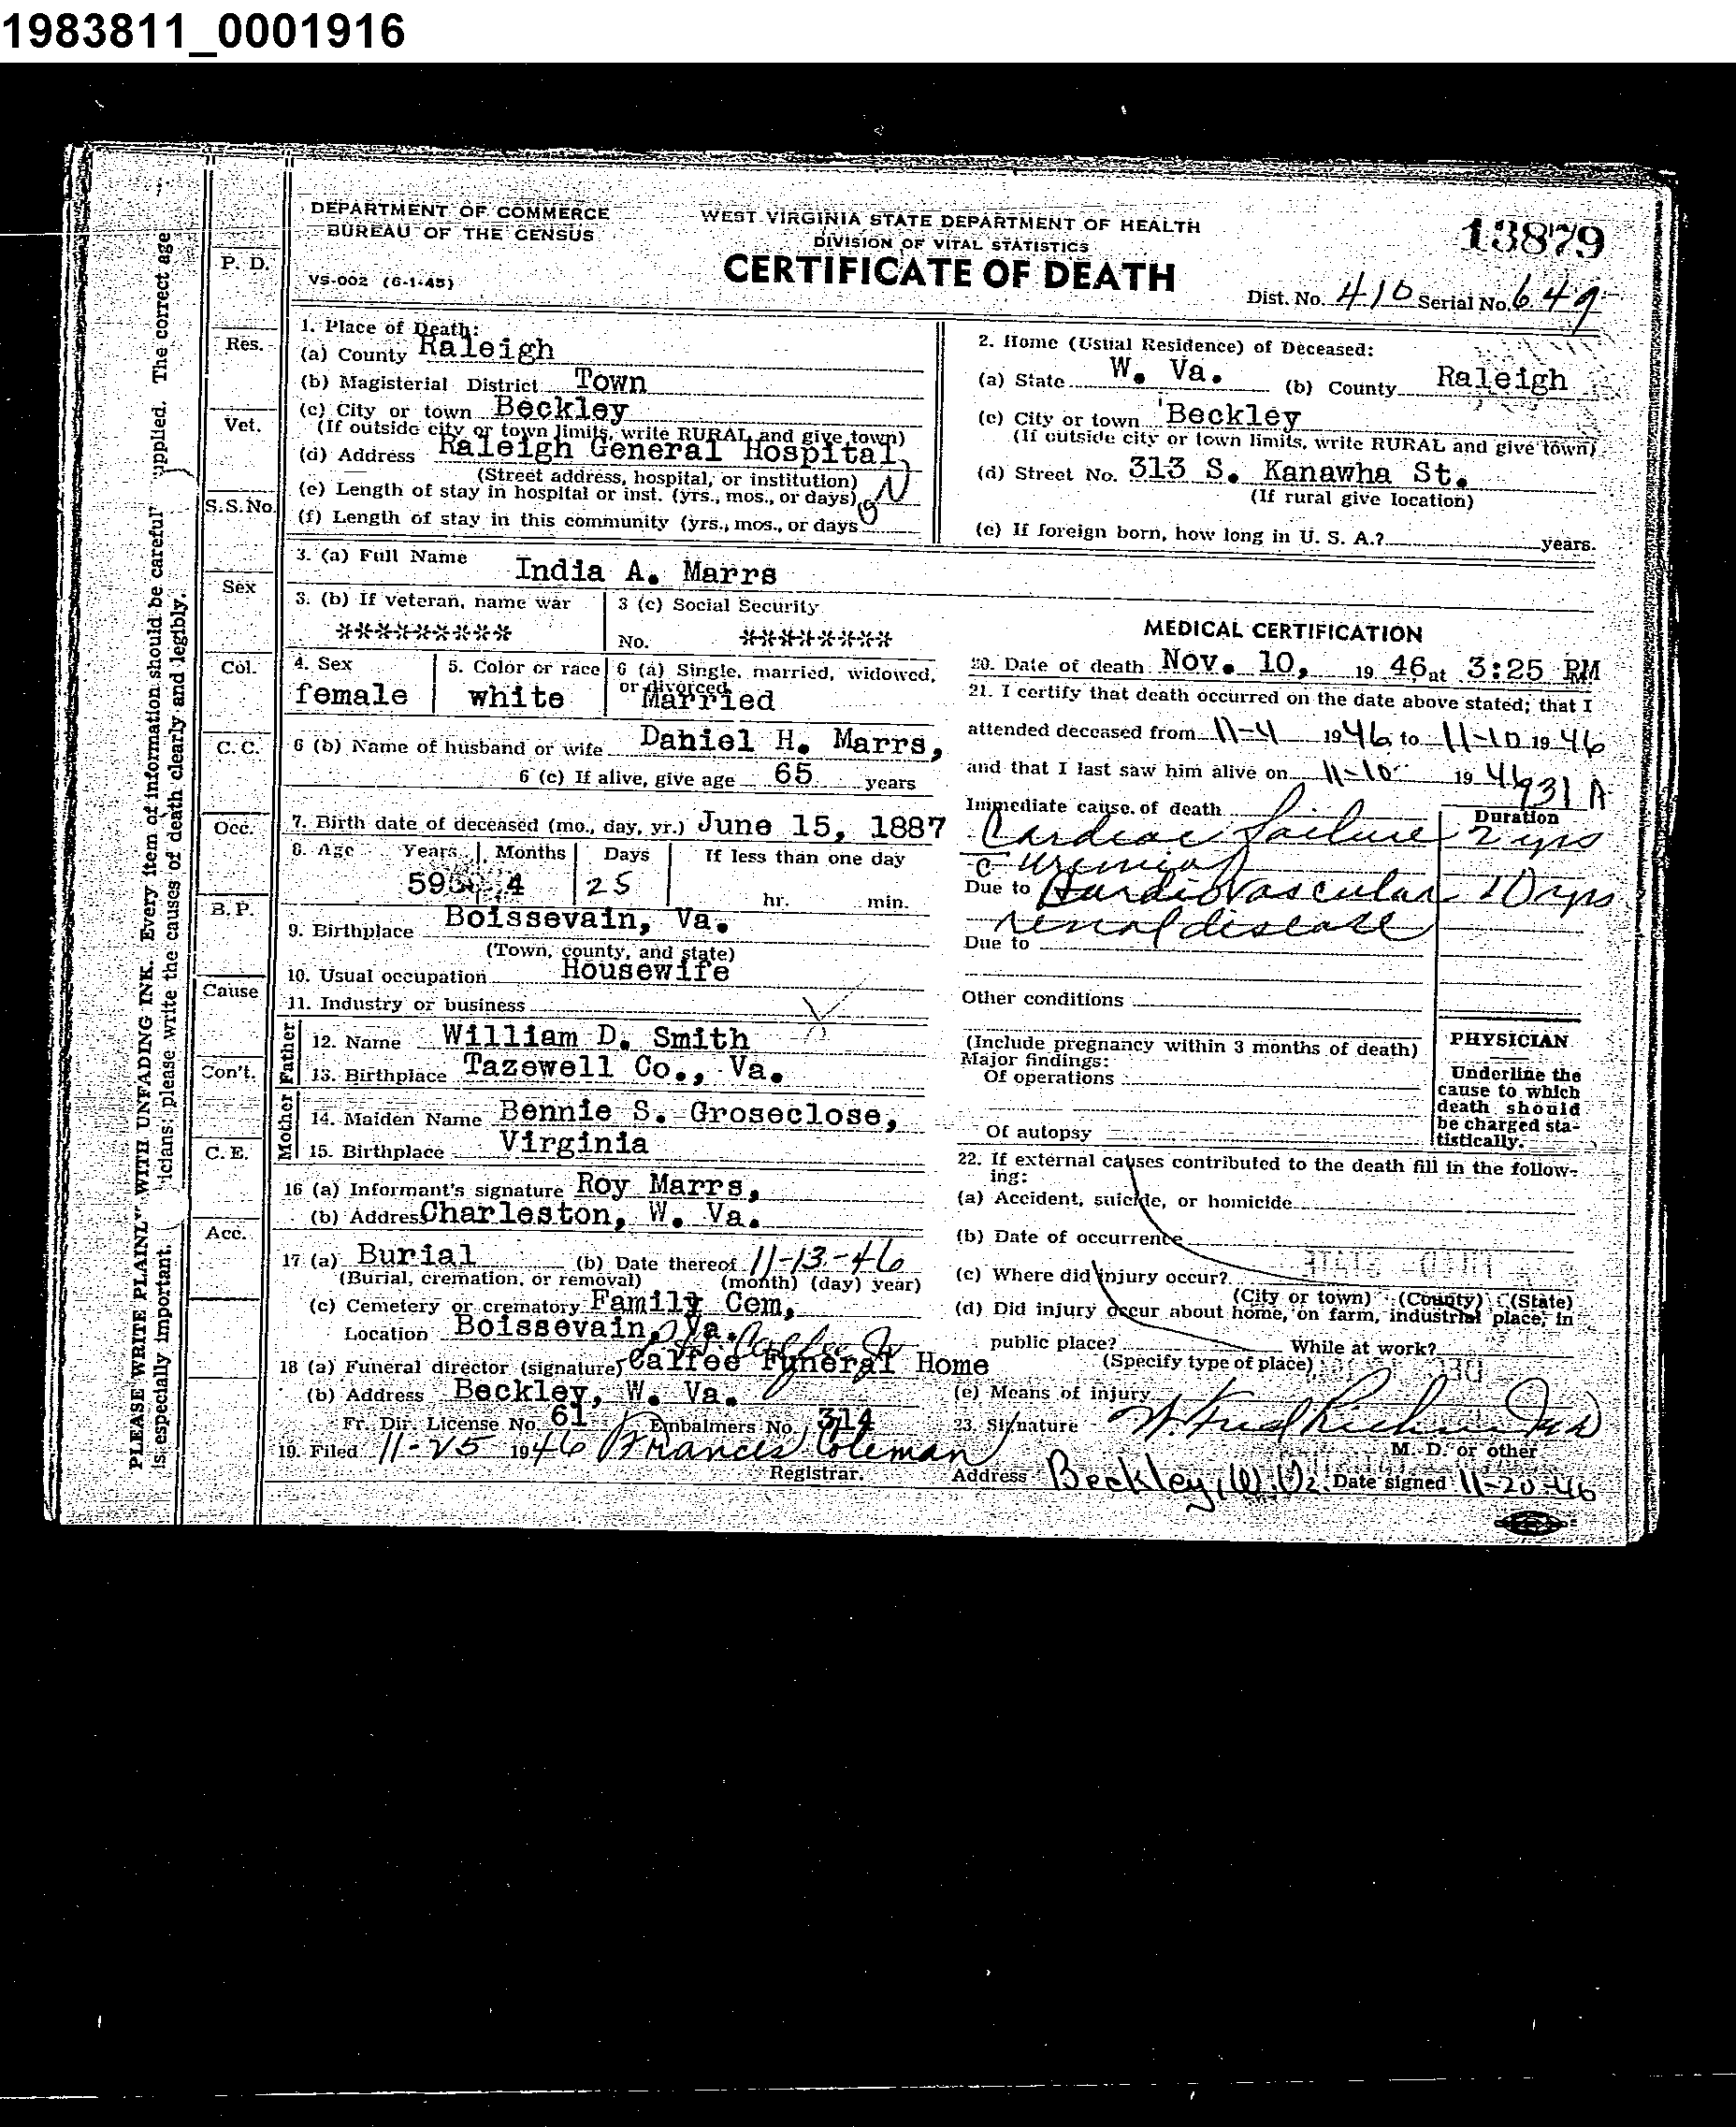 1983811_0001916
DEPARTMENT OF COMMERCE
BUREAU OF THE CENSUS
VS-002 (6-1-45)
WEST VIRGINIA STATE DEPARTMENT OF HEALTH
DIVISION OF VITAL STATISTICS
CERTIFICATE OF DEATH
13879
Dist. No. 410 Serial No. 649
PLEASE WRITE PLAINLY WITH UNFADING INK. Every item of information should be careful upplied. The correct age
is especially important. icians: please write the causes of death clearly and legibly.
P. D.
Res.
Vet.
S.S.No.
Sex
Col.
C. C.
Occ.
B. P.
Cause
Con't.
C. E.
Acc.
1. Place of Death:
(a) County Raleigh
(b) Magisterial District Town
(c) City or town Beckley
(If outside city or town limits, write RURAL and give town)
(d) Address Raleigh General Hospital
(Street address, hospital, or institution)
(e) Length of stay in hospital or inst. (yrs., mos., or days)
(f) Length of stay in this community (yrs., mos., or days
2. Home (Usual Residence) of Deceased:
(a) State W. Va. (b) County Raleigh
(c) City or town Beckley
(If outside city or town limits, write RURAL and give town)
(d) Street No. 313 S. Kanawha St.
(If rural give location)
(e) If foreign born, how long in U. S. A.? years.
3. (a) Full Name India A. Marrs
3. (b) If veteran, name war *********
3 (c) Social Security
No. ********
4. Sex female
5. Color or race white
6 (a) Single, married, widowed,
or divorced Married
6 (b) Name of husband or wife Daniel H. Marrs,
6 (c) If alive, give age 65 years
7. Birth date of deceased (mo., day, yr.) June 15, 1887
8. Age Years Months Days If less than one day
59 4 25 hr. min.
9. Birthplace Boissevain, Va.
(Town, county, and state)
10. Usual occupation Housewife
11. Industry or business
Father
12. Name William D. Smith
13. Birthplace Tazewell Co., Va.
Mother
14. Maiden Name Bennie S. Groseclose,
15. Birthplace Virginia
16 (a) Informant's signature Roy Marrs,
(b) Address Charleston, W. Va.
17 (a) Burial (b) Date thereof 11-13-46
(Burial, cremation, or removal) (month) (day) year)
(c) Cemetery or crematory Family Cem,
Location Boissevain, Va.
18 (a) Funeral director (signature) Calfee Funeral Home
(b) Address Beckley, W. Va.
Fr. Dir. License No. 61 Embalmers No. 314
19. Filed 11-25 1946 Frances Coleman
Registrar.
MEDICAL CERTIFICATION
20. Date of death Nov. 10, 19 46 at 3:25 PM
21. I certify that death occurred on the date above stated; that I
attended deceased from 11-4 1946 to 11-10 1946
and that I last saw him alive on 11-10 19 46
931 A
Immediate cause of death Duration
Cardiac failure 2 yrs
c Uremia
Due to Cardiovascular 10 yrs
renal disease
Due to
Other conditions
(Include pregnancy within 3 months of death)
Major findings:
Of operations
Of autopsy
PHYSICIAN
Underline the
cause to which
death should
be charged sta-
tistically.
22. If external causes contributed to the death fill in the follow-
ing:
(a) Accident, suicide, or homicide
(b) Date of occurrence
(c) Where did injury occur?
(City or town) (County) (State)
(d) Did injury occur about home, on farm, industrial place, in
public place? While at work?
(Specify type of place)
(e) Means of injury
23. Signature
M. D. or other
Address Beckley, W. Va. Date signed 11-20-46